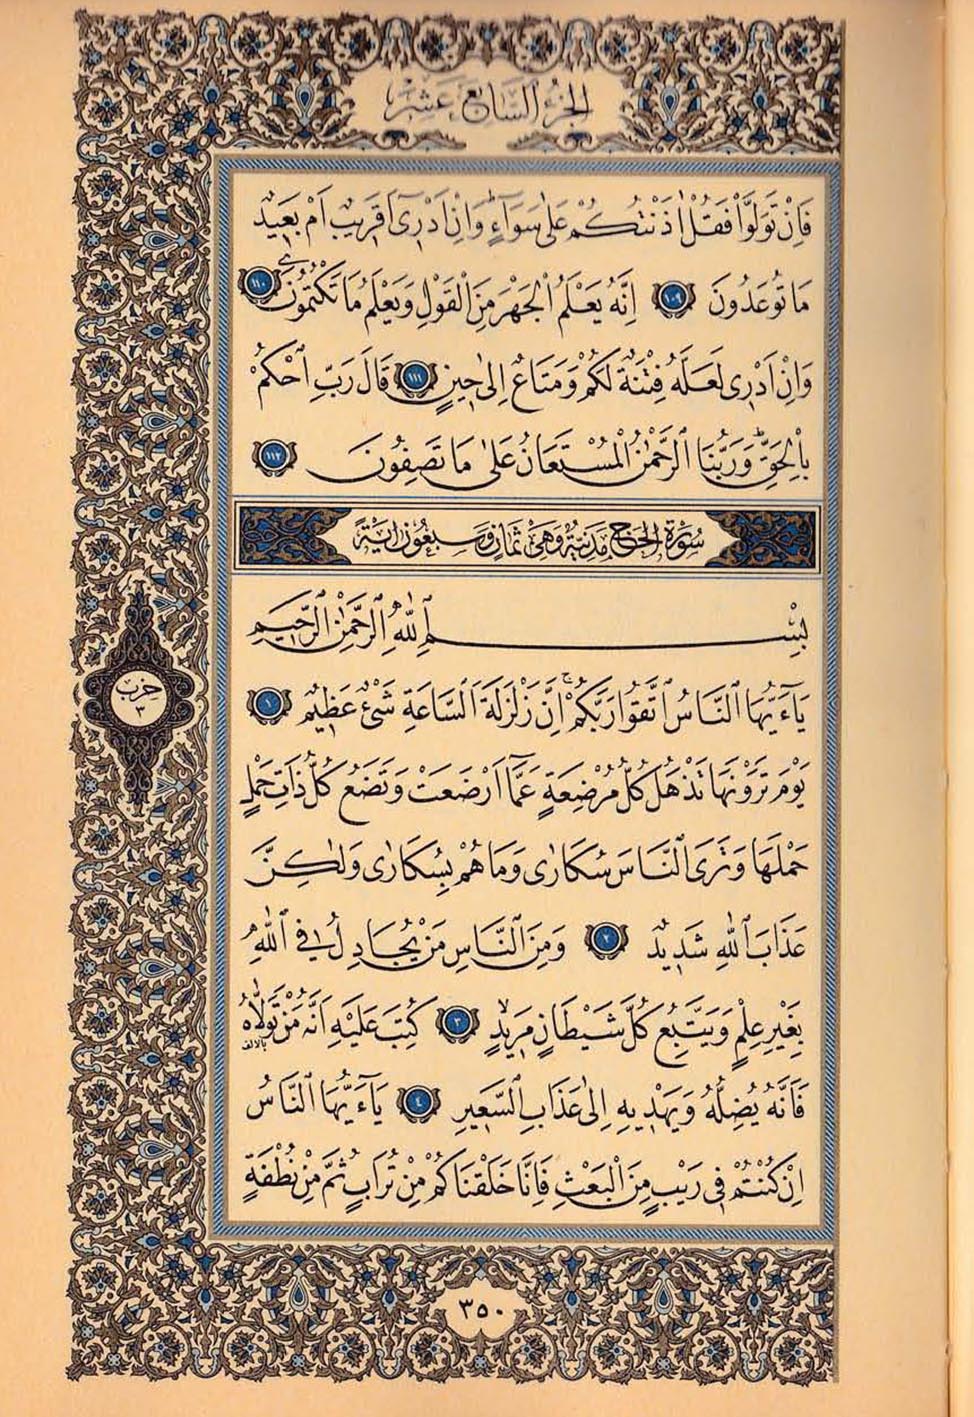 الجزء السابع عشر
فَاِنْ تَوَلَّوْا فَقُلْ اٰذَنْتُكُمْ عَلٰى سَوَٓاءٍ وَاِنْ اَدْرٖٓى اَقَرٖيبٌ اَمْ بَعٖيدٌ
مَا تُوعَدُونَ ١٠٩ اِنَّهُ يَعْلَمُ الْجَهْرَ مِنَ الْقَوْلِ وَيَعْلَمُ مَا تَكْتُمُونَ ١١٠
وَاِنْ اَدْرٖى لَعَلَّهُ فِتْنَةٌ لَكُمْ وَمَتَاعٌ اِلٰى حٖينٍ ١١١ قَالَ رَبِّ احْكُمْ
بِالْحَقِّ وَرَبُّنَا الرَّحْمٰنُ الْمُسْتَعَانُ عَلٰى مَا تَصِفُونَ ١١٢
سُورَةُ الْحَجِّ مَدَنِيَّةٌ وَهِيَ ثَمَانٍ وَسَبْعُونَ اٰيَةً
بِسْمِ اللّٰهِ الرَّحْمٰنِ الرَّحٖيمِ
يَٓا ءَيُّهَا النَّاسُ اتَّقُوا رَبَّكُمْ اِنَّ زَلْزَلَةَ السَّاعَةِ شَيْءٌ عَظٖيمٌ ١
يَوْمَ تَرَوْنَهَا تَذْهَلُ كُلُّ مُرْضِعَةٍ عَمَّٓا اَرْضَعَتْ وَتَضَعُ كُلُّ ذَاتِ حَمْلٍ
حَمْلَهَا وَتَرَى النَّاسَ سُكَارٰى وَمَا هُمْ بِسُكَارٰى وَلٰكِنَّ
عَذَابَ اللّٰهِ شَدٖيدٌ ٢ وَمِنَ النَّاسِ مَنْ يُجَادِلُ فِي اللّٰهِ
بِغَيْرِ عِلْمٍ وَيَتَّبِعُ كُلَّ شَيْطَانٍ مَرٖيدٍ ٣ كُتِبَ عَلَيْهِ اَنَّهُ مَنْ تَوَلَّاهُ
بالالف
فَاَنَّهُ يُضِلُّهُ وَيَهْدٖيهِ اِلٰى عَذَابِ السَّعٖيرِ ٤ يَٓا ءَيُّهَا النَّاسُ
اِنْ كُنْتُمْ فٖى رَيْبٍ مِنَ الْبَعْثِ فَاِنَّا خَلَقْنَاكُمْ مِنْ تُرَابٍ ثُمَّ مِنْ نُطْفَةٍ
حزب
٣
٣٥٠